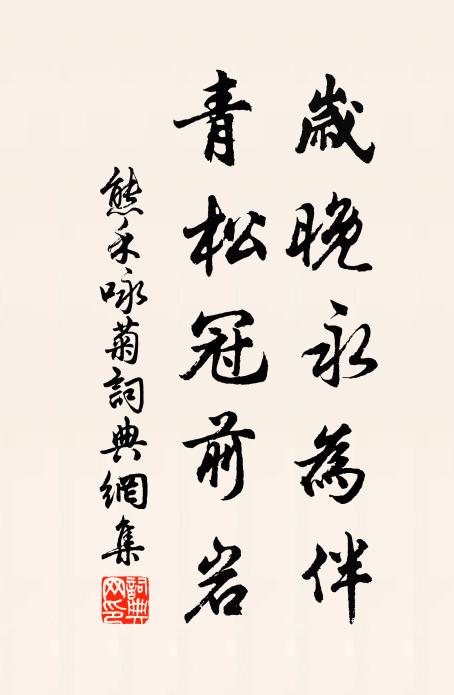 歲晚永為伴
青松冠前岩
熊禾咏菊詞典網集
詞典網印